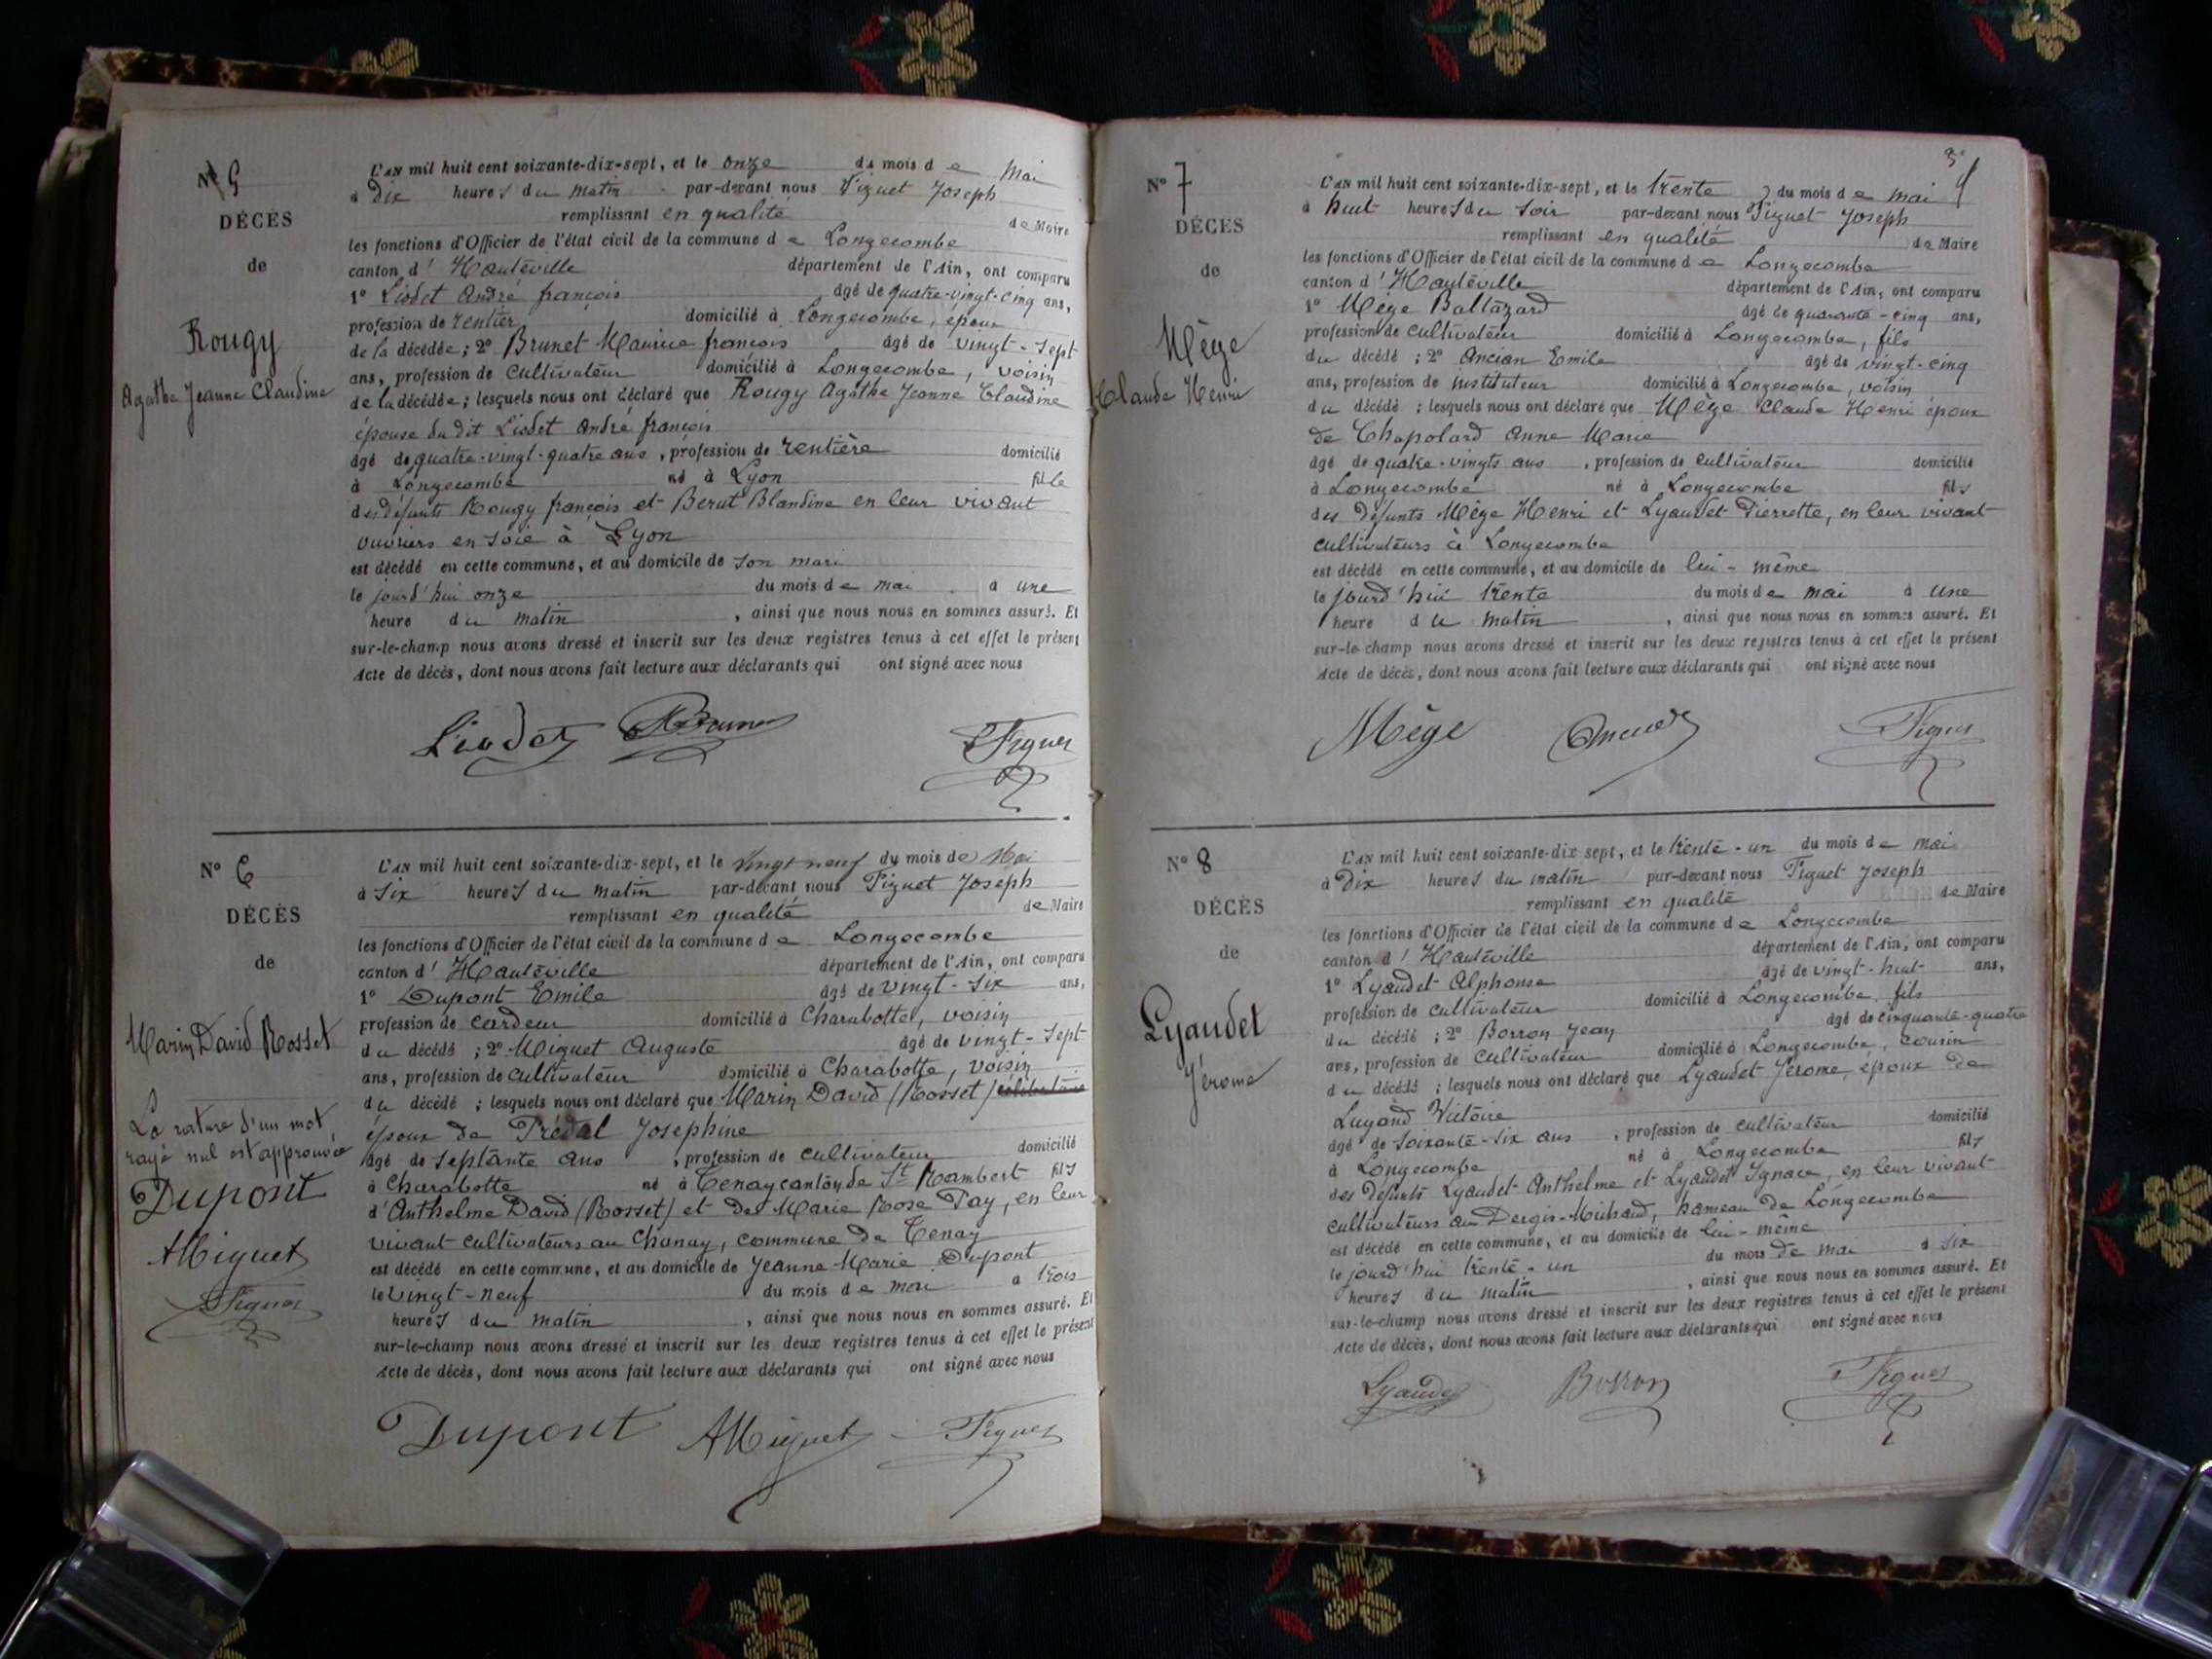 N° 5
DÉCÈS
de
Rougy
Agathe Jeanne Claudine
L'AN mil huit cent soixante-dix-sept, et le onze du mois de Mai
à Dix heures du matin par-devant nous Figuet Joseph
remplissant en qualité de Maire
les fonctions d'Officier de l'état civil de la commune de Longecombe
canton d'Hauteville département de l'Ain, ont comparu
1° Liodet André françois âgé de quatre-vingt-cinq ans,
profession de rentier domicilié à Longecombe, époux
de la décédée; 2° Brunet Maurice françois âgé de vingt-sept
ans, profession de cultivateur domicilié à Longecombe, voisin
de la décédée; lesquels nous ont déclaré que Rougy Agathe Jeanne Claudine
épouse du dit Liodet André françois
âgé de quatre-vingt-quatre ans, profession de rentière domicilié
à Longecombe né à Lyon fille
des défunts Rougy françois et Berut Blandine en leur vivant
ouvriers en soie à Lyon
est décédé en cette commune, et au domicile de son mari
le jourd'hui onze du mois de mai à une
heure du matin, ainsi que nous nous en sommes assuré. Et
sur-le-champ nous avons dressé et inscrit sur les deux registres tenus à cet effet le présent
Acte de décès, dont nous avons fait lecture aux déclarants qui ont signé avec nous
Liodet Brunet Figuet
N° 6
DÉCÈS
de
Marin David Rosset
La rature d'un mot
rayé nul est approuvée
Dupont
AMiguet
Figuet
L'AN mil huit cent soixante-dix-sept, et le vingt neuf du mois de Mai
à six heures du matin par-devant nous Figuet Joseph
remplissant en qualité de Maire
les fonctions d'Officier de l'état civil de la commune de Longecombe
canton d'Hauteville département de l'Ain, ont comparu
1° Dupont Emile âgé de vingt-six ans,
profession de cardeur domicilié à Charabotte, voisin
du décédé; 2° Miguet Auguste âgé de vingt-sept
ans, profession de cultivateur domicilié à Charabotte, voisin
du décédé; lesquels nous ont déclaré que Marin David (Rosset) célibataire
époux de Prédal Josephine
âgé de septante ans, profession de cultivateur domicilié
à Charabotte né à Tenay canton de St Rambert fils
d'Anthelme David (Rosset) et de Marie Rose Pay, en leur
vivant cultivateurs au Chanay, commune de Tenay
est décédé en cette commune, et au domicile de Jeanne Marie Dupont
le vingt-neuf du mois de mai à trois
heures du matin, ainsi que nous nous en sommes assuré. Et
sur-le-champ nous avons dressé et inscrit sur les deux registres tenus à cet effet le présent
Acte de décès, dont nous avons fait lecture aux déclarants qui ont signé avec nous
Dupont AMiguet Figuet
N° 7
DÉCÈS
de
Mège
Claude Henri
L'AN mil huit cent soixante-dix-sept, et le trente du mois de mai
à huit heures du soir par-devant nous Figuet Joseph
remplissant en qualité de Maire
les fonctions d'Officier de l'état civil de la commune de Longecombe
canton d'Hauteville département de l'Ain, ont comparu
1° Mège Baltazard âgé de quarante-cinq ans,
profession de cultivateur domicilié à Longecombe, fils
du décédé; 2° Ancian Emile âgé de vingt-cinq
ans, profession de instituteur domicilié à Longecombe, voisin
du décédé; lesquels nous ont déclaré que Mège Claude Henri époux
de Chapolard Anne Marie
âgé de quatre-vingts ans, profession de cultivateur domicilié
à Longecombe né à Longecombe fils
des défunts Mège Henri et Lyaudet Pierrette, en leur vivant
cultivateurs à Longecombe
est décédé en cette commune, et au domicile de lui-même
le jourd'hui trente du mois de mai à une
heure du matin, ainsi que nous nous en sommes assuré. Et
sur-le-champ nous avons dressé et inscrit sur les deux registres tenus à cet effet le présent
Acte de décès, dont nous avons fait lecture aux déclarants qui ont signé avec nous
Mège Ancian Figuet
N° 8
DÉCÈS
de
Lyaudet
Jérome
L'AN mil huit cent soixante-dix sept, et le trente-un du mois de mai
à Dix heures du matin par-devant nous Figuet Joseph
remplissant en qualité de Maire
les fonctions d'Officier de l'état civil de la commune de Longecombe
canton d'Hauteville département de l'Ain, ont comparu
1° Lyaudet Alphonse âgé de vingt-huit ans,
profession de cultivateur domicilié à Longecombe, fils
du décédé; 2° Borron Jean âgé de cinquante-quatre
ans, profession de cultivateur domicilié à Longecombe, cousin
du décédé; lesquels nous ont déclaré que Lyaudet Jérome, époux de
Lugand Victoire
âgé de soixante-six ans, profession de cultivateur domicilié
à Longecombe né à Longecombe fils
des défunts Lyaudet Anthelme et Lyaudet Ignace, en leur vivant
cultivateurs au Dergis-Michaud, hameau de Longecombe
est décédé en cette commune, et au domicile de lui-même
le jourd'hui trente-un du mois de mai à six
heures du matin, ainsi que nous nous en sommes assuré. Et
sur-le-champ nous avons dressé et inscrit sur les deux registres tenus à cet effet le présent
Acte de décès, dont nous avons fait lecture aux déclarants qui ont signé avec nous
Lyaudet Borron Figuet